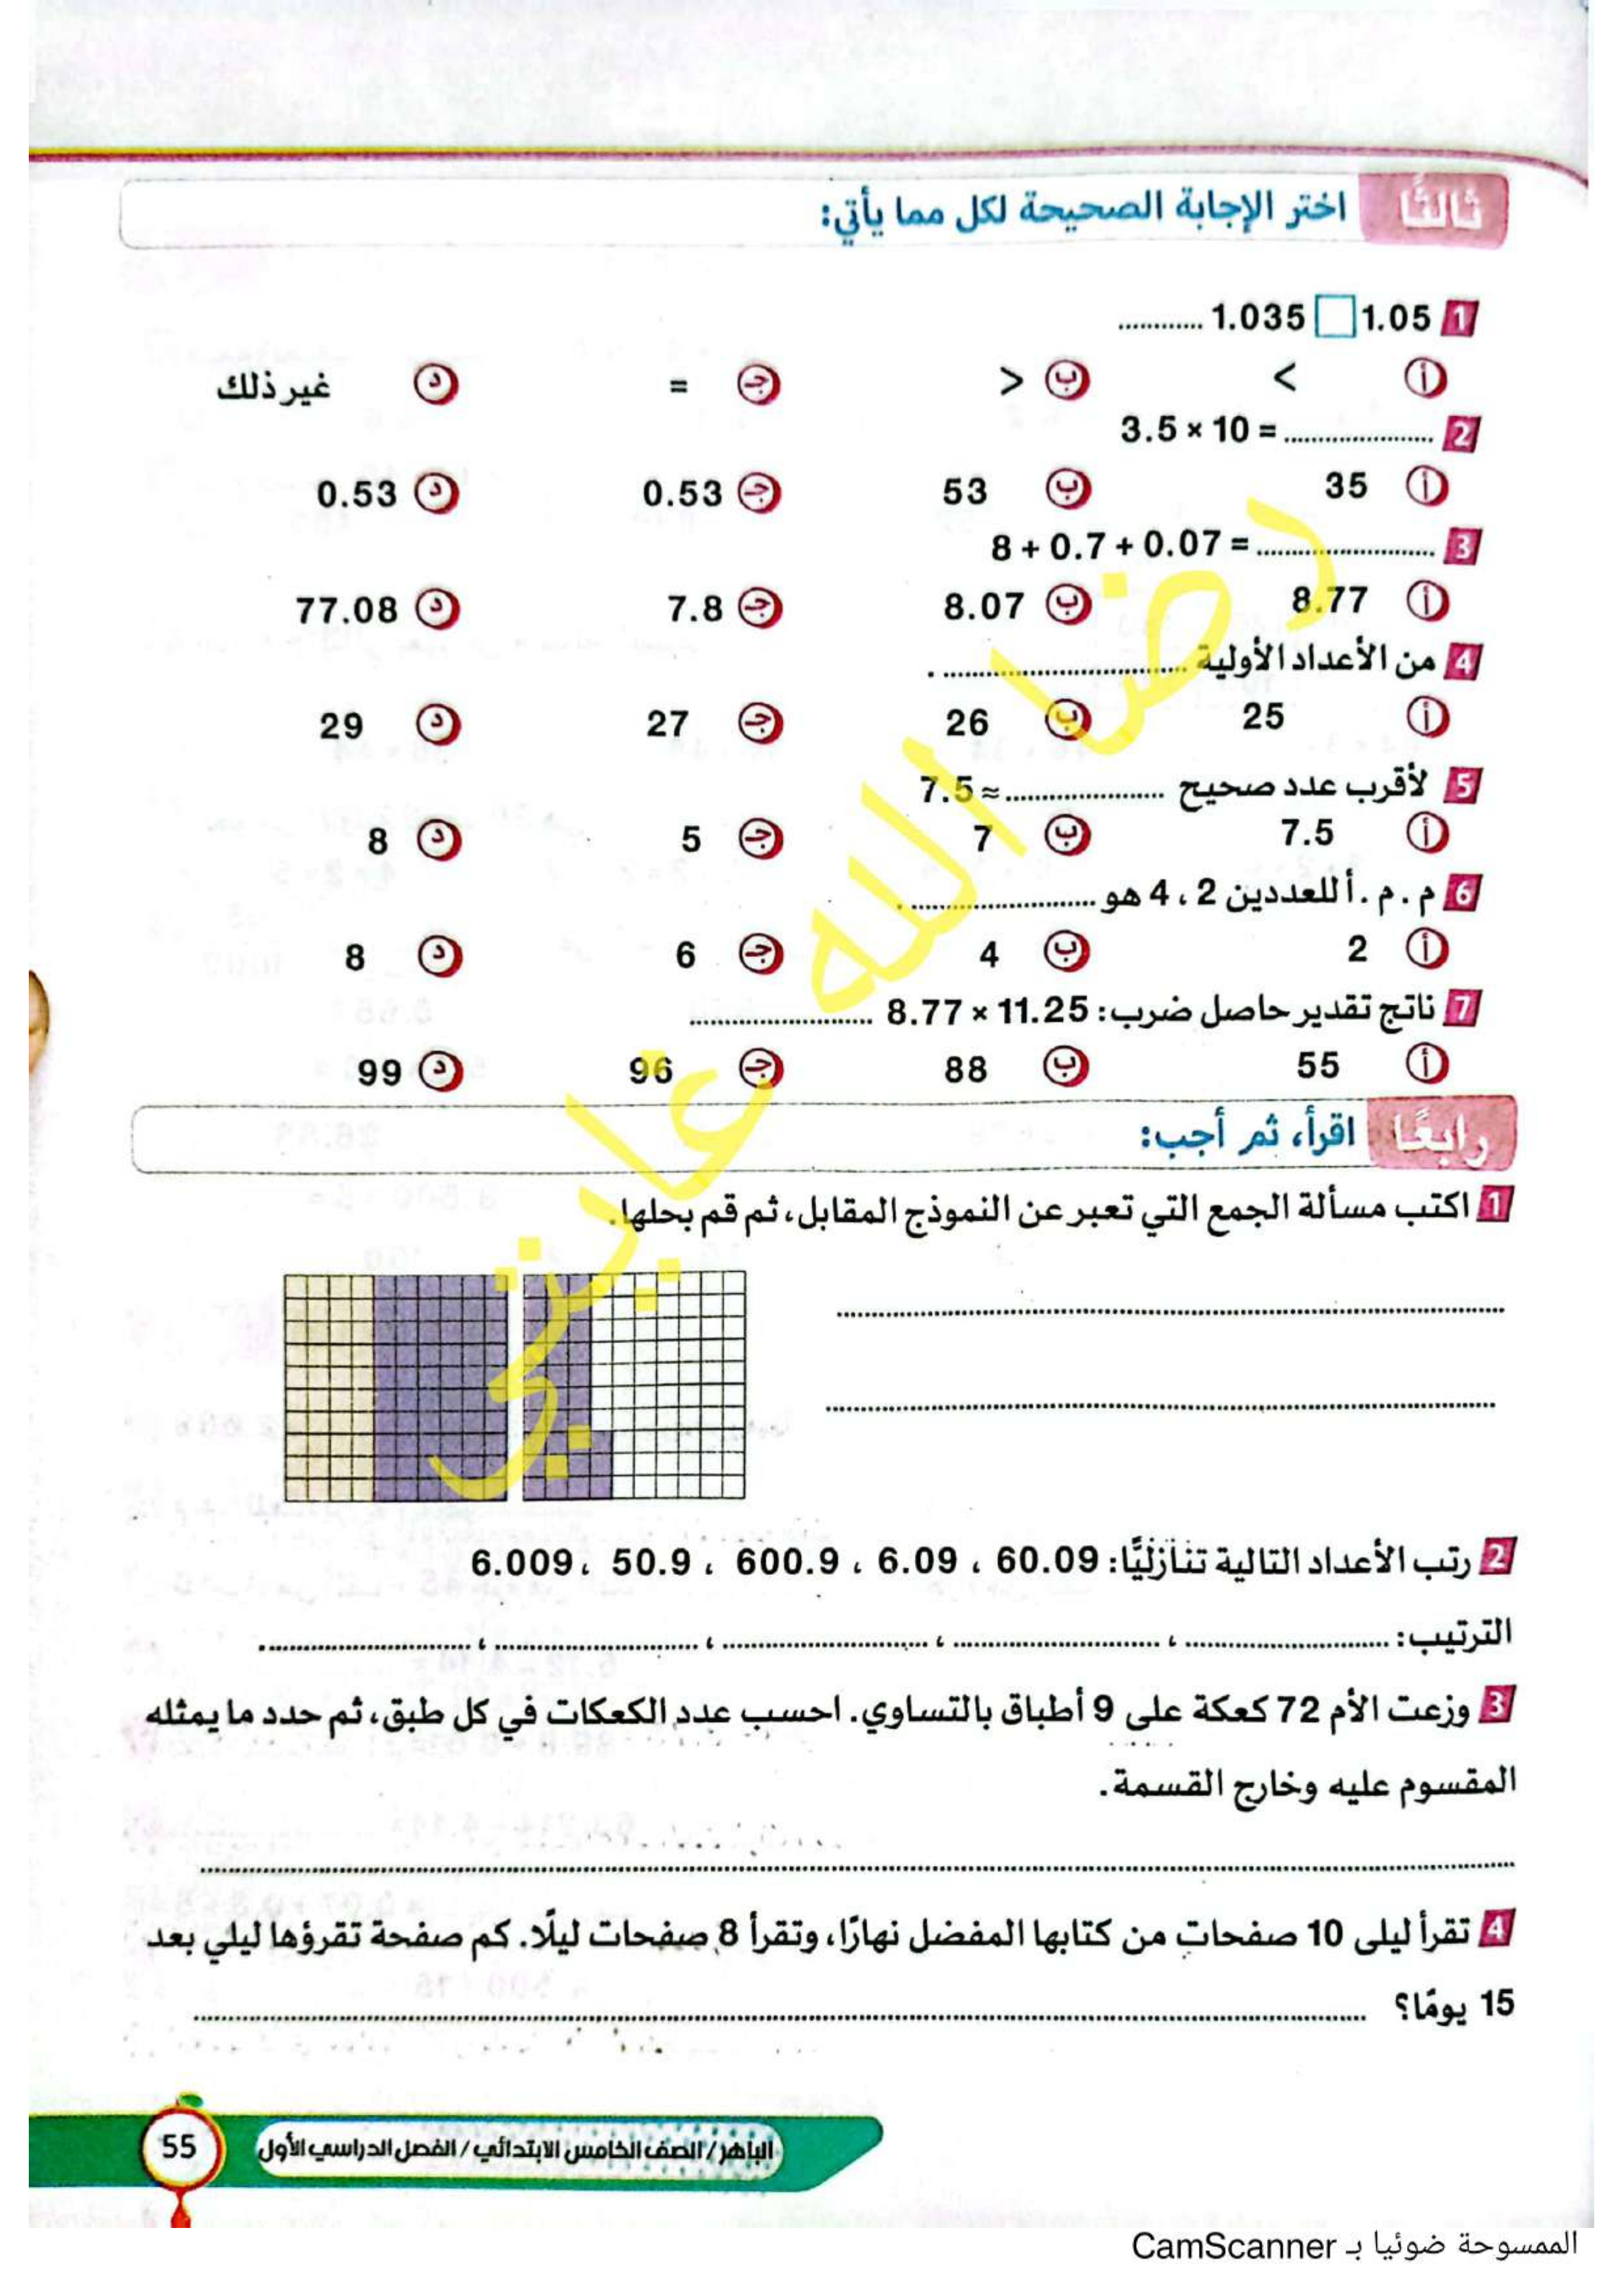 ثالثًا اختر الإجابة الصحيحة لكل مما يأتي:
1 1.05 □ 1.035 ............
أ < ب > جـ = د غير ذلك
2 3.5 × 10 = ......................
أ 35 ب 53 جـ 0.53 د 0.53
3 8 + 0.7 + 0.07 = ..........................
أ 8.77 ب 8.07 جـ 7.8 د 77.08
4 من الأعداد الأولية .................................... .
أ 25 ب 26 جـ 27 د 29
5 لأقرب عدد صحيح ....................... ≈ 7.5
أ 7.5 ب 7 جـ 5 د 8
6 م . م . أ للعددين 2 ، 4 هو ........................... .
أ 2 ب 4 جـ 6 د 8
7 ناتج تقدير حاصل ضرب: 11.25 × 8.77 ...........................
أ 55 ب 88 جـ 96 د 99
رابعًا اقرأ، ثم أجب:
1 اكتب مسألة الجمع التي تعبر عن النموذج المقابل، ثم قم بحلها.
2 رتب الأعداد التالية تنازليًّا: 60.09 ، 6.09 ، 600.9 ، 50.9 ، 6.009
الترتيب: .............................. ، .............................. ، .............................. ، .............................. ، ..............................
3 وزعت الأم 72 كعكة على 9 أطباق بالتساوي. احسب عدد الكعكات في كل طبق، ثم حدد ما يمثله
المقسوم عليه وخارج القسمة.
4 تقرأ ليلى 10 صفحات من كتابها المفضل نهارًا، وتقرأ 8 صفحات ليلًا. كم صفحة تقرؤها ليلي بعد
15 يومًا؟
رضا الله غايتي
الباهر / الصف الخامس الابتدائي / الفصل الدراسي الأول 55
الممسوحة ضوئيا بـ CamScanner